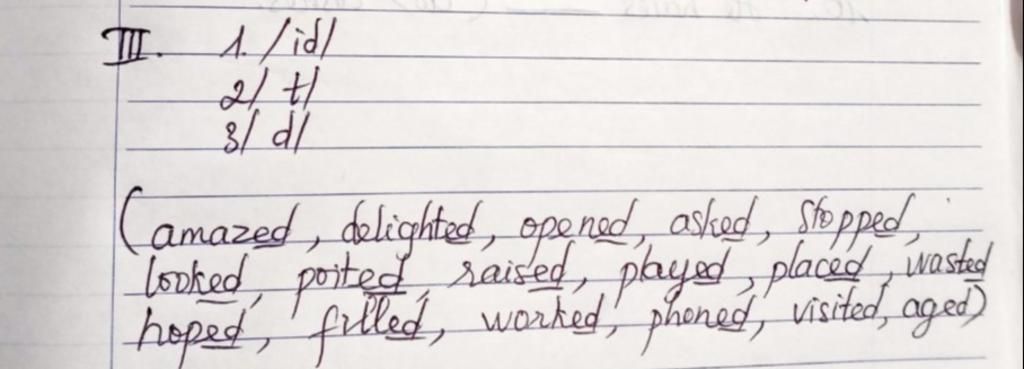 III. 1. /id/
2/ t/
3/ d/
(amazed, delighted, opened, asked, stopped,
looked, poited, raised, played, placed, wasted
hoped, filled, worked, phoned, visited, aged)